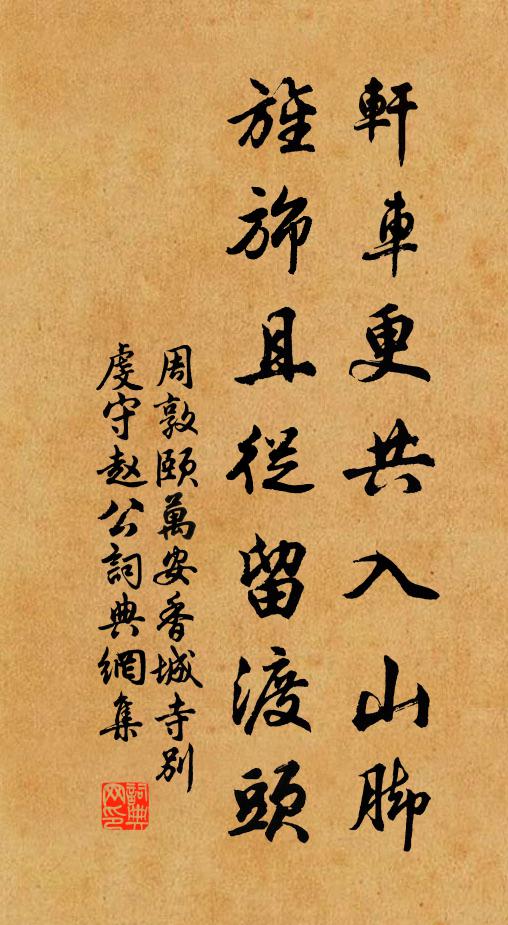 軒車更共入山脚
旌旆且從留渡頭
周敦頤萬安香城寺別
虔守赵公詞典網集
詞典网印